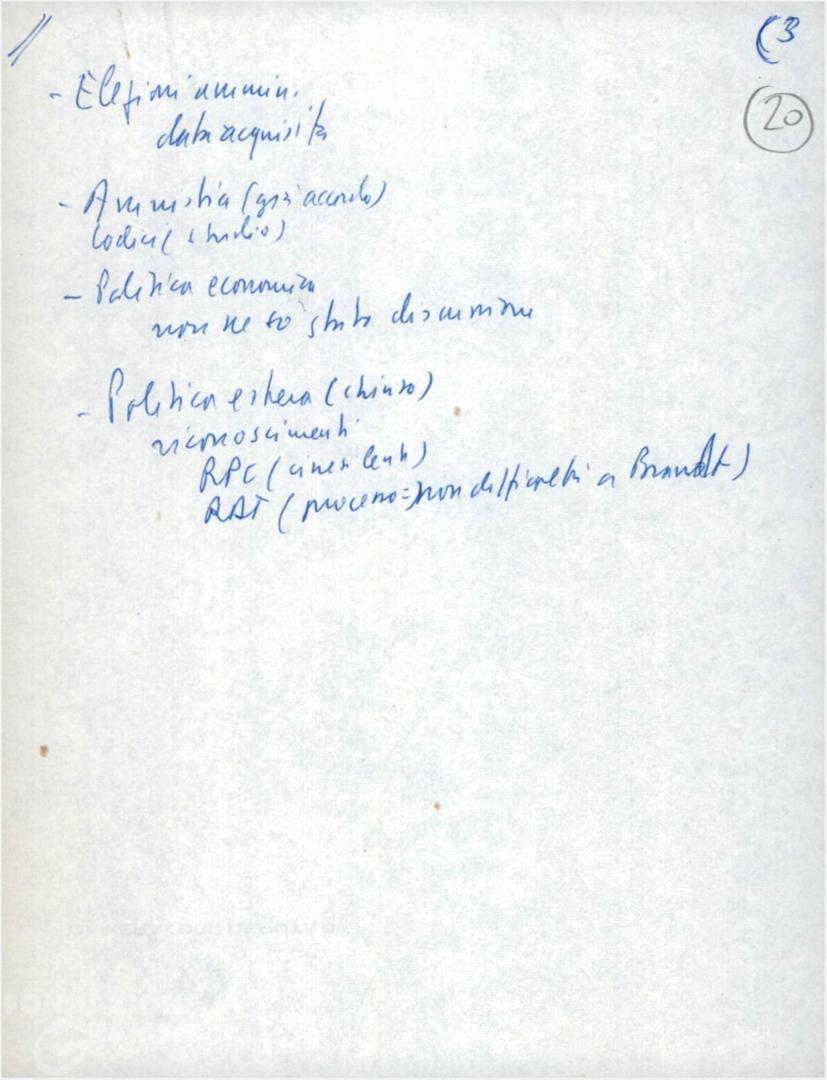 (3
20
- Elezioni ammin.
data acquisita
- Amnistia (già accordo)
Codici (studio)
- Politica economica
non ne so stata discussione
- Politica estera (chiuso)
riconoscimenti
RPC (cinesi lenti)
(processo => non difficoltà a Brandt)